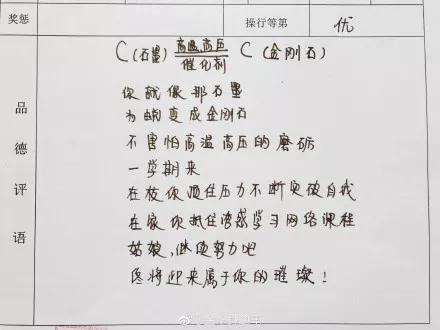 奖惩
操行等第 优
高温、高压
C(石墨) C(金刚石)
催化剂
品德评语
你就像那石墨
为蜕变成金刚石
不害怕高温高压的磨砺
一学期来
在校你顶住压力不断突破自我
在家你抵住诱惑学习网络课程
姑娘,继续努力吧
终将迎来属于你的璀璨!